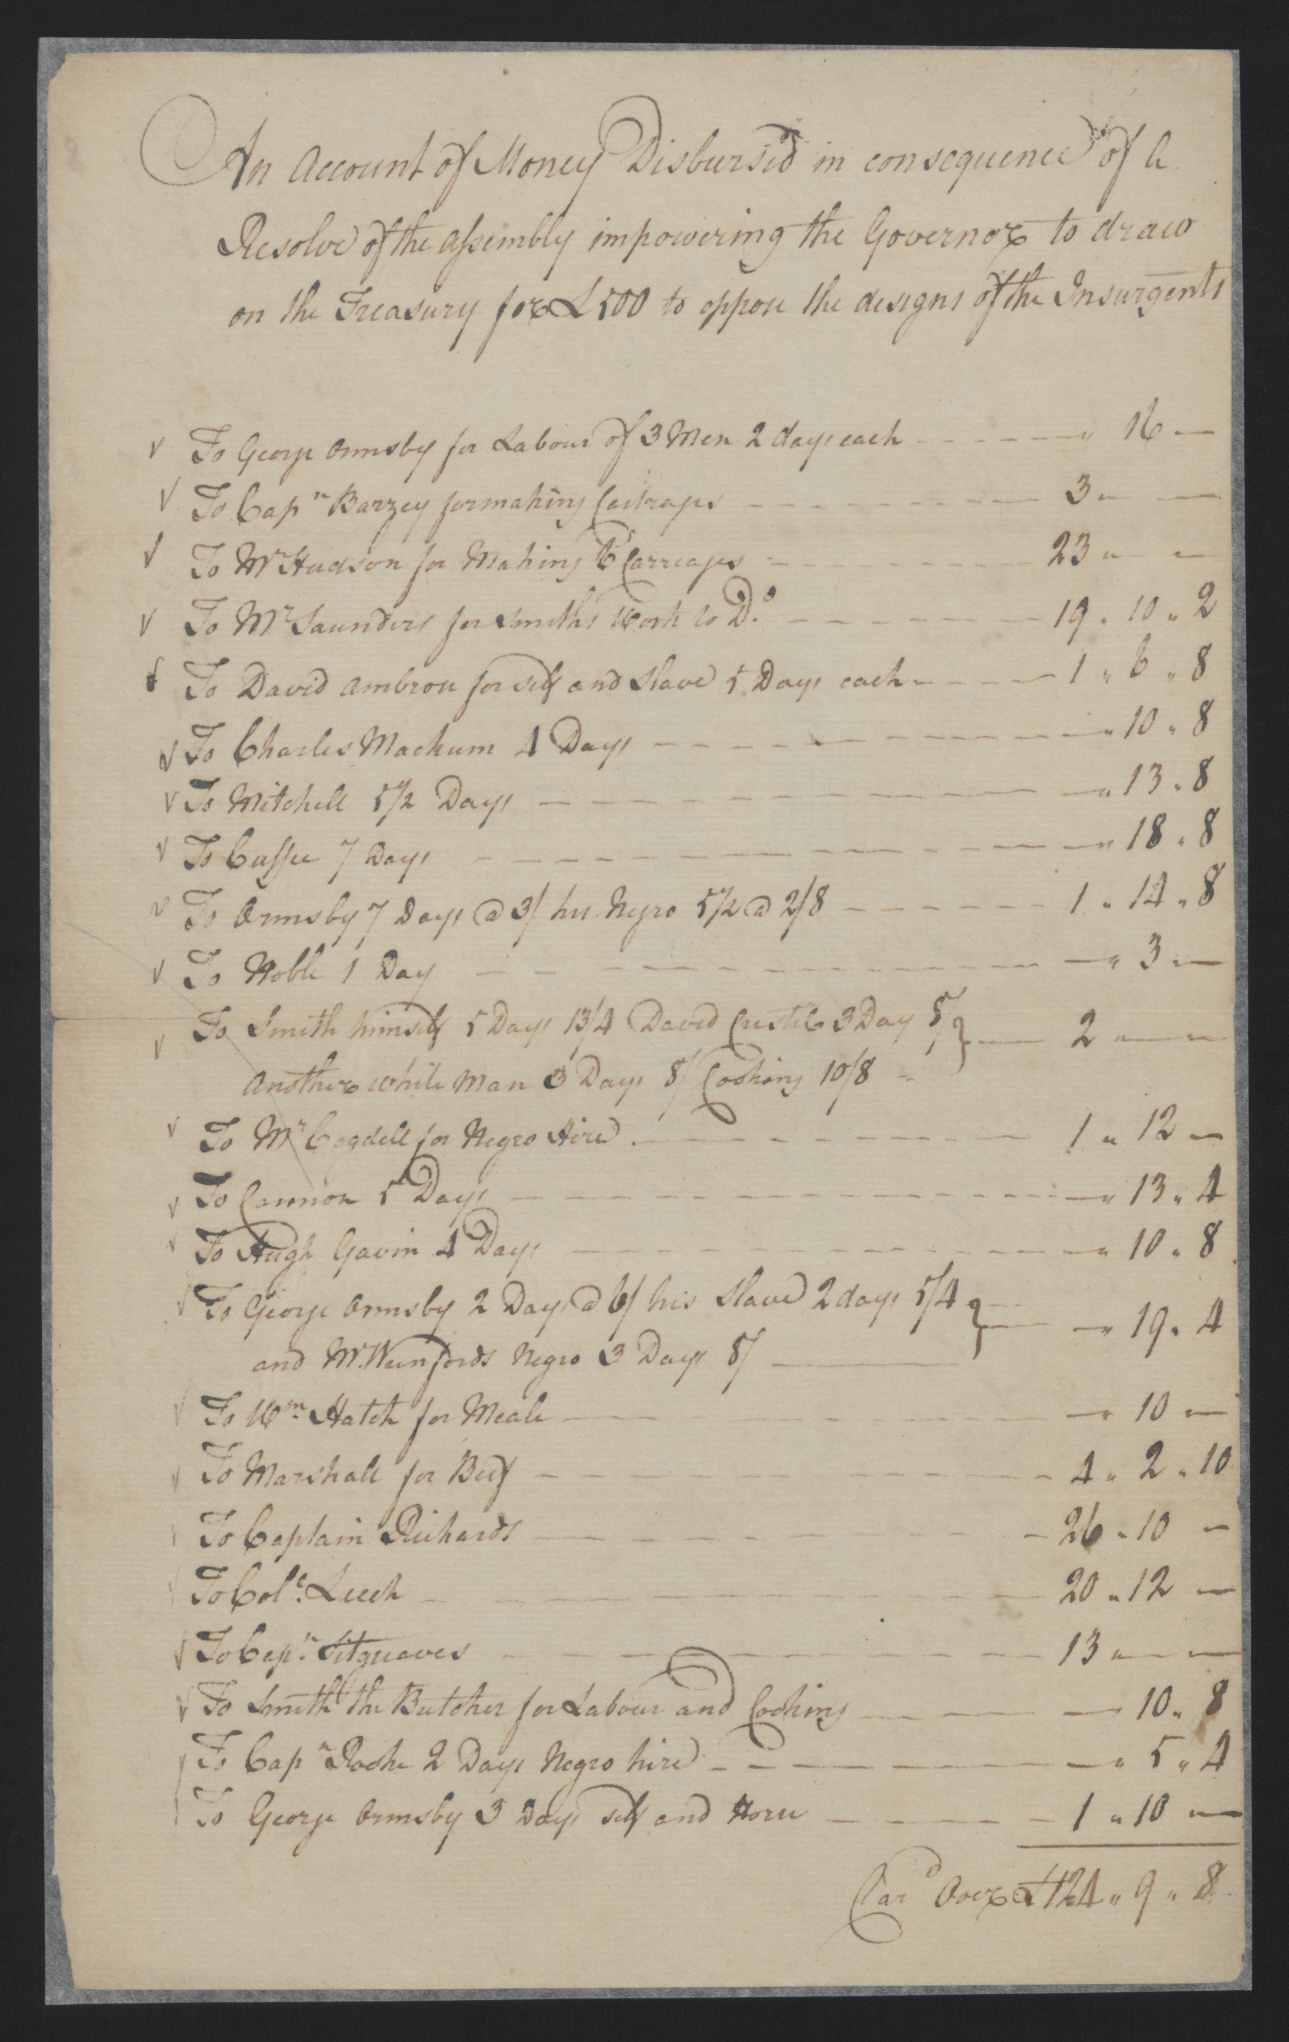 An Account of Money Disbursed in consequence of a
Resolve of the Assembly impowering the Governor to draw
on the Treasury for £500 to oppose the designs of the Insurgents
To George Ormsby for Labour of 3 Men 2 days each " 16 —
To Capn Barzey for making Caltraps 3 " —
To Mr Hudson for Making 6 Carriages 23 " —
To Mr Saunders for Smiths Work to Do. 19 " 10 " 2
To David Ambrose for self and Slave 5 Days each 1 " 6 " 8
To Charles Mackum 4 Days " 10 " 8
To Mitchell 5 1/2 Days " 13 " 8
To Cuffee 7 Days " 18 " 8
To Ormsby 7 Days @ 3/ his Negro 5 1/2 @ 2/8 1 " 14 " 8
To Noble 1 Day " 3 —
To Smith himself 5 Days 13/4 David 3 Day 8/
another white man 3 Days 8/ Cooking 10/8 2 " —
To Mr Cogdell for Negro Hire 1 " 12 —
To Cannon 5 Days " 13 " 4
To Hugh Gavin 4 Days " 10 " 8
To George Ormsby 2 Days @ 6/ his Slave 2 days 5/4
and Mr. Negro 3 Days 8/ " 19 " 4
To Wm Hatch for Meale " 10 —
To Marshall for Beef 4 " 2 " 10
To Captain Richards 26 " 10 —
To Colo. Leech 20 " 12 —
To Capn. Sitgreaves 13 " —
To Smith the Butcher for Labour and Cooking — 10 " 8
To Capn 2 Days Negro hire " 5 " 4
To George Ormsby 3 Days self and Horse 1 " 10 —
Card Over £124 " 9 " 8